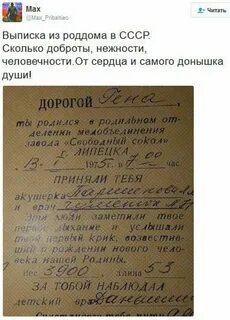 Max
@Max_Pribaltiec
Читать
Выписка из роддома в СССР.
Сколько доброты, нежности,
человечности.От сердца и самого донышка
души!
ДОРОГОЙ Гена,
ты родился в родильном от-
делении медобъединения
завода „Свободный сокол"
г. ЛИПЕЦКА
13. I 1975г. в 7 00 час.
ПРИНЯЛИ ТЕБЯ
акушерка
и врач
Эти люди заметили твое
первое дыхание и услышали
твой первый крик, возвестив-
ший о рождении нового чело-
века нашей Родины.
Вес 3900, длина 53
ЗА ТОБОЙ НАБЛЮДАЛ
детский врач